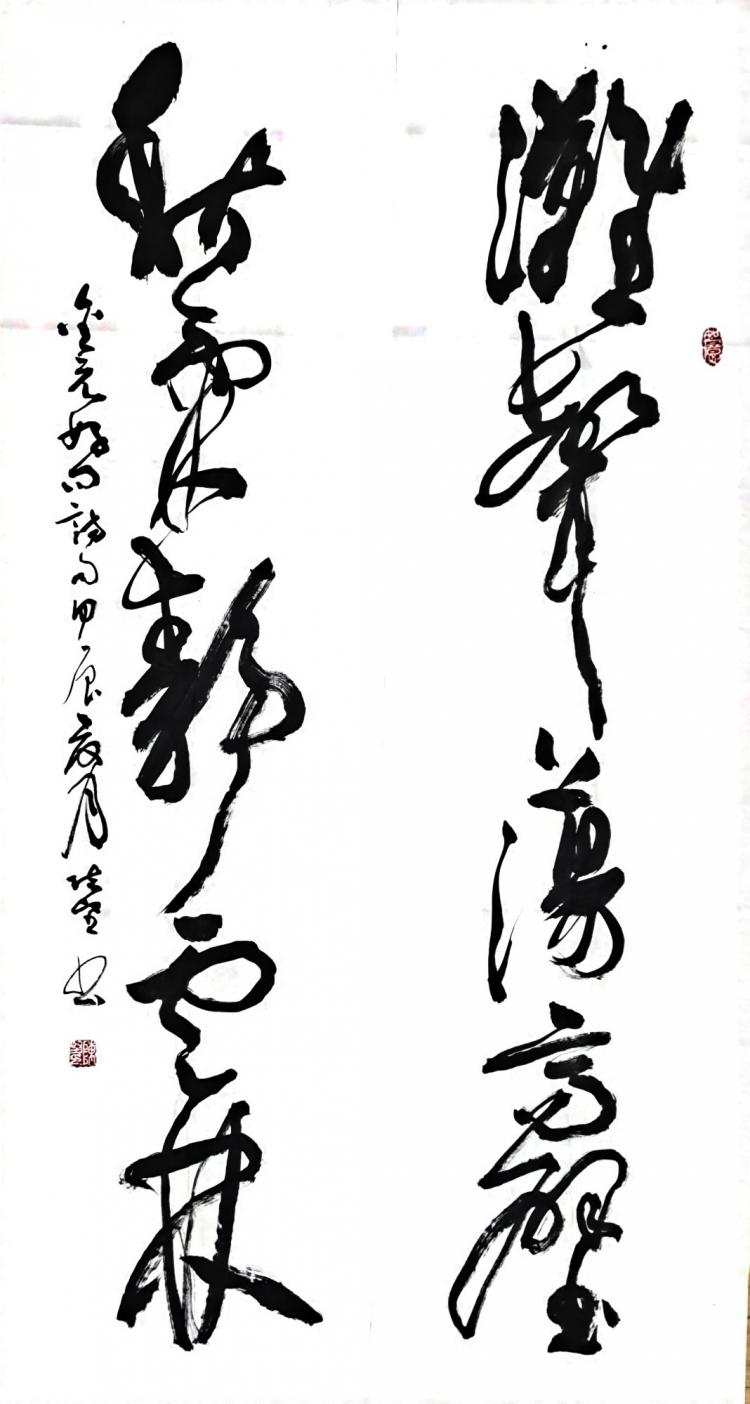 灘聲蕩高壁
秋氣靜雲林
金元好问詩句甲辰夏月书